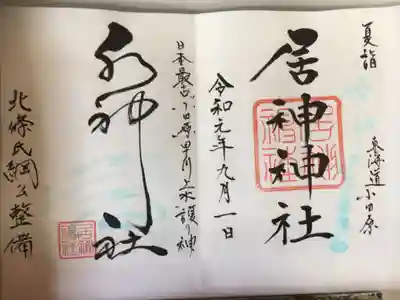 夏詣
東海道小田原
居神神社
令和元年九月一日
日本最古小田原早川上水護り神
水神社
北條氏綱公整備